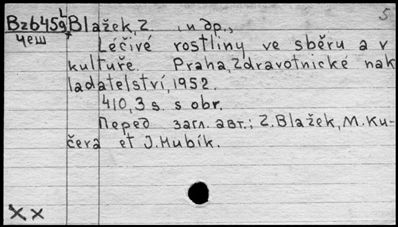 5
Bz645g Blažek, Z и др.,
чеш Léčivé rostliny ve sběru a v
kultuře. Praha, Zdravotnické nak
ladatelství, 1952.
410, 3 s. s obr.
Перед загл. авт.: Z. Blažek, M. Ku-
čera et J. Hubík.
XX